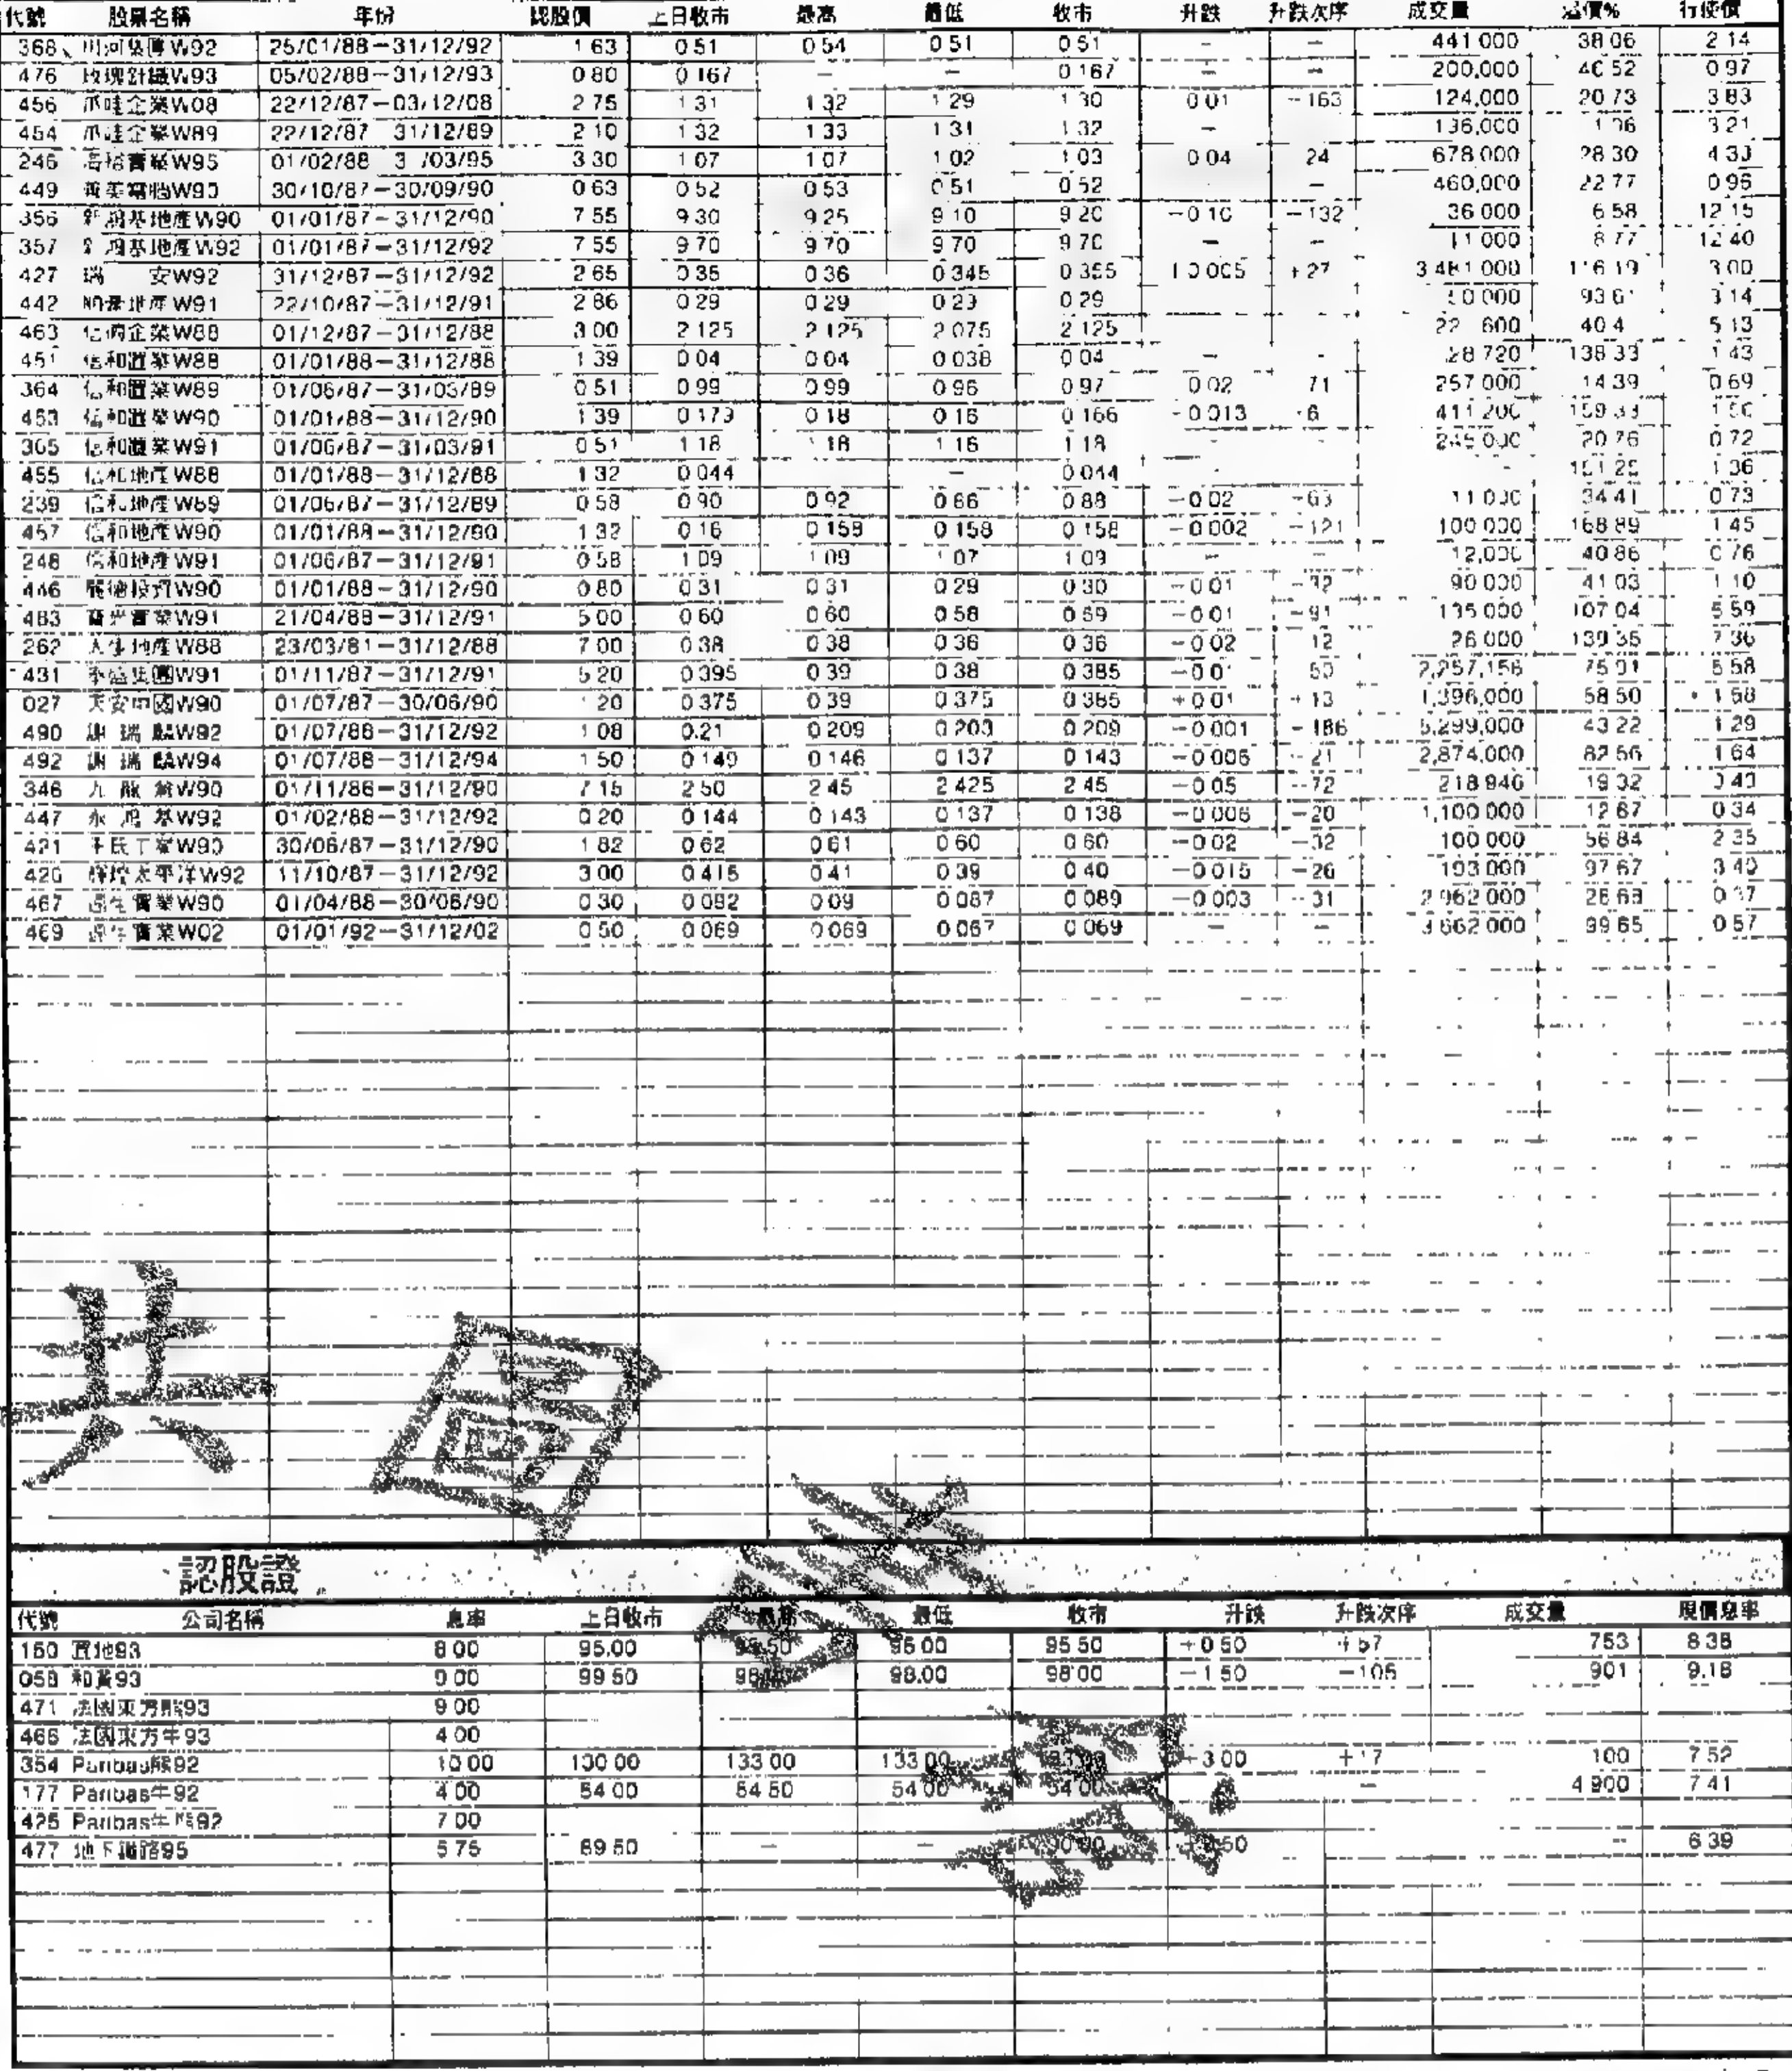 代號 股票名稱 年份 認股價 上日收市 最高 最低 收市 升跌 升跌次序 成交量 溢價% 行使價
368 川河集團W92 25/01/88-31/12/92 1 63 0 51 0 54 0 51 0 51 - - 441 000 38 06 2 14
476 玫瑰針織W93 05/02/88-31/12/93 0 80 0 167 - - 0 167 - - 200,000 0 97
456 爪哇企業W08 22/12/87-03/12/08 2 75 1 31 1 32 1 29 1 30 0 01 -163 124,000 20 73 3 83
454 爪哇企業W89 22/12/87 31/12/89 2 10 1 32 1 33 1 31 1 32 - 136,000 3 21
246 實業W95 01/02/88 3 /03/95 3 30 1 07 1 07 1 02 1 03 0 04 24 678 000 28 30 4 33
449 電腦W90 30/10/87-30/09/90 0 63 0 52 0 53 0 51 0 52 - 460,000 22 77 0 96
356 新鴻基地產W90 01/01/87-31/12/90 7 55 9 30 9 25 9 10 9 20 -0 10 -132 36 000 6 58 12 15
357 新鴻基地產W92 01/01/87-31/12/92 7 55 9 70 9 70 9 70 9 70 - - 11 000 8 77 12 40
427 瑞 安W92 31/12/87-31/12/92 2 65 0 35 0 36 0 345 0 355 0 005 +27 3 481 000 116 19 3 00
442 地產W91 22/10/87-31/12/91 2 86 0 29 0 29 0 29 0 29 0 000 93 6 3 14
463 企業W88 01/12/87-31/12/88 3 00 2 125 2 125 2 075 2 125 22 600 40 4 5 13
451 信和置業W88 01/01/88-31/12/88 1 39 0 04 0 04 0 038 0 04 - - 28 720 138 33 1 43
364 信和置業W89 01/06/87-31/03/89 0 51 0 99 0 99 0 96 0 97 0 02 71 257 000 14 39 0 69
453 信和置業W90 01/01/88-31/12/90 1 39 0 179 0 18 0 16 0 166 -0 013 6 411 200 159 33
365 信和置業W91 01/06/87-31/03/91 0 51 1 18 1 18 1 16 1 18 20 76 0 72
455 信和地產W88 01/01/88-31/12/88 1 32 0 044 - 0 044 - 1 36
239 信和地產W89 01/06/87-31/12/89 0 58 0 90 0 92 0 88 -0 02 -63 11 000 34 41 0 73
457 信和地產W90 01/01/88-31/12/90 1 32 0 16 0 158 0 158 0 158 -0 002 -121 100 000 168 89 1 45
248 信和地產W91 01/06/87-31/12/91 0 58 1 09 1 09 1 07 1 09 - - 12,000 40 86 0 76
446 W90 01/01/88-31/12/90 0 80 0 31 0 31 0 29 0 30 -0 01 -32 90 000 41 03 1 10
483 實業W91 21/04/88-31/12/91 5 00 0 60 0 60 0 58 0 59 -0 01 -91 135 000 107 04 5 59
262 大生地產W88 23/03/81-31/12/88 7 00 0 38 0 38 0 36 0 36 -0 02 12 26 000 139 35 7 36
431 集團W91 01/11/87-31/12/91 5 20 0 395 0 39 0 38 0 385 -0 0 50 2,257,156 75 91 5 58
027 天安中國W90 01/07/87-30/06/90 1 20 0 375 0 39 0 375 0 385 +0 01 +13 1,396,000 58 50 1 58
490 謝 瑞 麟W92 01/07/88-31/12/92 1 08 0.21 0 209 0 203 0 209 -0 001 -186 5,299,000 43 22 1 29
492 謝 瑞 麟W94 01/07/88-31/12/94 1 50 0 149 0 146 0 137 0 143 -0 006 -21 2,874,000 82 56 1 64
346 九 龍 倉W90 01/11/86-31/12/90 7 15 2 50 2 45 2 425 2 45 -0 05 -72 218 946 19 32
447 永 鴻 基W92 01/02/88-31/12/92 0 20 0 144 0 143 0 137 0 138 -0 006 -20 1,100 000 12 67 0 34
421 王氏工業W90 30/06/87-31/12/90 1 82 0 62 0 61 0 60 0 60 -0 02 -32 100 000 56 84 2 35
420 太平洋W92 11/10/87-31/12/92 3 00 0 415 0 41 0 39 0 40 -0 015 -26 193 000 97 67 3 40
467 實業W90 01/04/88-30/06/90 0 30 0 092 0 09 0 087 0 089 -0 003 -31 2 962 000 0 37
469 實業W02 01/01/92-31/12/02 0 50 0 069 0 069 0 067 0 069 - - 3 662 000 99 65 0 57
共
圖
書
認股證
代號 公司名稱 息率 上日收市 最高 最低 收市 升跌 升跌次序 成交量 現價息率
160 置地93 8 00 95.00 50 95 00 95 50 +0 50 +57 753 8 38
058 和黃93 9 00 99 50 98 98.00 98 00 -1 50 -105 901 9.18
471 法國東方熊93 9 00
466 法國東方牛93 4 00
354 Paribas熊92 10 00 130 00 133 00 133 00 +3 00 +17 100 7 52
177 Paribas牛92 4 00 54 00 54 50 54 00 54 00 - 4 900 7 41
425 Paribas牛熊92 7 00
477 地下鐵路95 5 75 89 50 - - 50 - 6 39